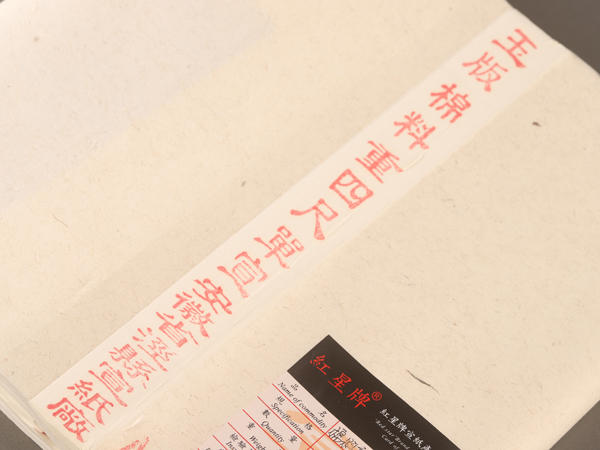 玉版棉料重四尺單宣
安徽省涇縣宣紙廠
紅星牌®
紅星牌宣紙
"Red star" Brand
Card of
品名
Name of commodity
規格
Specification
數量
Quantity
重量
檢驗